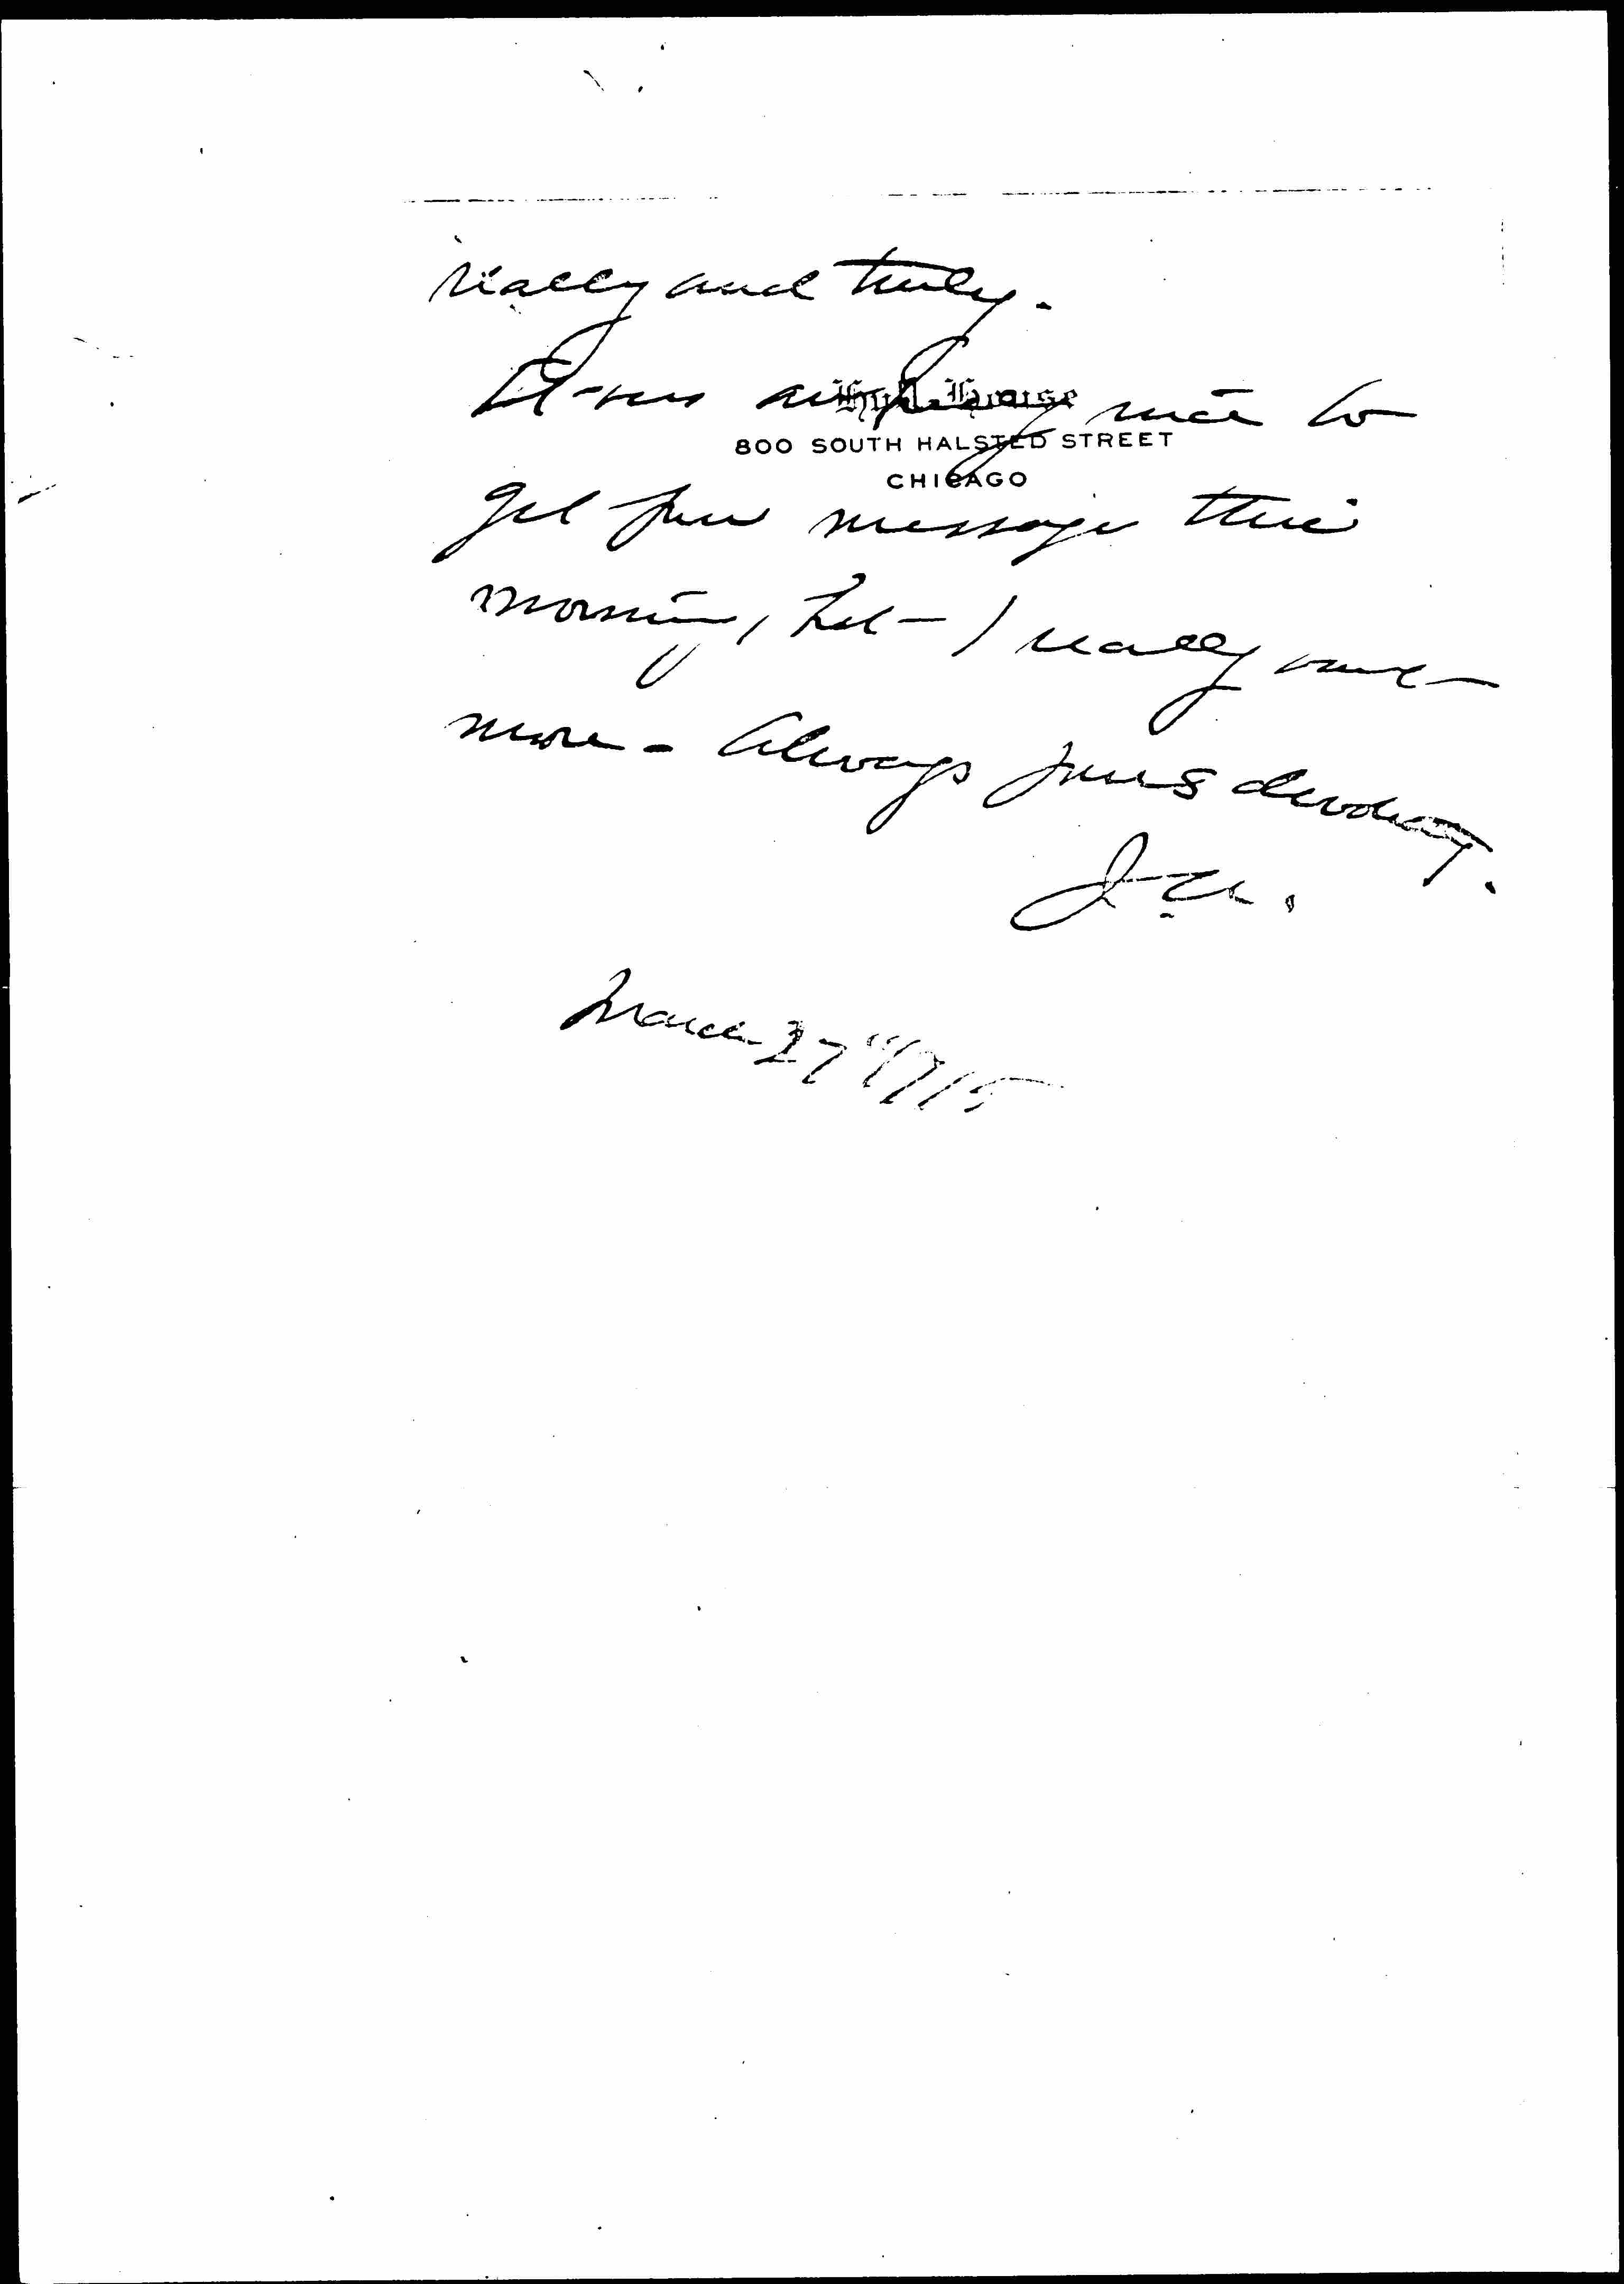 really and truly.
It was awfully nice to
Hull-House
800 SOUTH HALSTED STREET
CHICAGO
get your message this
morning, but I really want
more - Always yours devotedly.
J. A.
March 27" 1915